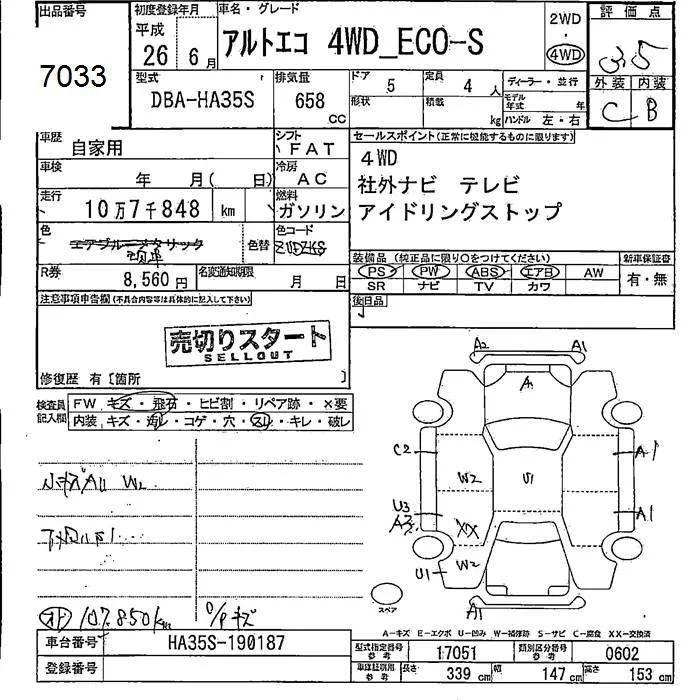 出品番号 初度登録年月 車名・グレード 評価点
7033 平成 26 6月 アルトエコ 4WD_ECO-S 2WD 4WD 3.5
型式 排気量 ドア 5 定員 4人 ディーラー・並行 外装 内装
DBA-HA35S 658 cc 形状 積載 kg モデル年式 年 ハンドル 左・右 C B
車歴 自家用 シフト FAT セールスポイント(正常に機能するものに限ります)
車検 年 月( 日) 冷房 AC 4WD
走行 10万7千848 km 燃料 ガソリン 社外ナビ テレビ
アイドリングストップ
色 エアブルーメタリック 色替 色コード ZUDZKS
装備品(純正品に限り○をつけてください) 新車保証書
PS PW ABS エアB AW 有・無
SR ナビ TV カワ
R券 8,560円 名変通知期限 月 日
後日品
注意事項申告欄(不具合内容等は具体的に記入して下さい)
売切りスタート
SELLOUT
修復歴 有〔箇所 〕
検査員記入欄 FW キズ・飛石・ヒビ割・リペア跡・×要
内装 キズ・汚レ・コゲ・穴・スレ・キレ・破レ
A2 A1
A1
C2 A1
W2 U1
U3 A1
A3 XX
U1 W2
A1
小キズAU W2
オド 107,850km O/Pキズ
スペア
A-キズ E-エクボ U-凹み W-補修跡 S-サビ C-腐食 XX-交換済
車台番号 HA35S-190187 型式指定番号 参考 17051 類別区分番号 参考 0602
登録番号 車庫証明用 参考 長さ 339 cm 幅 147 cm 高さ 153 cm